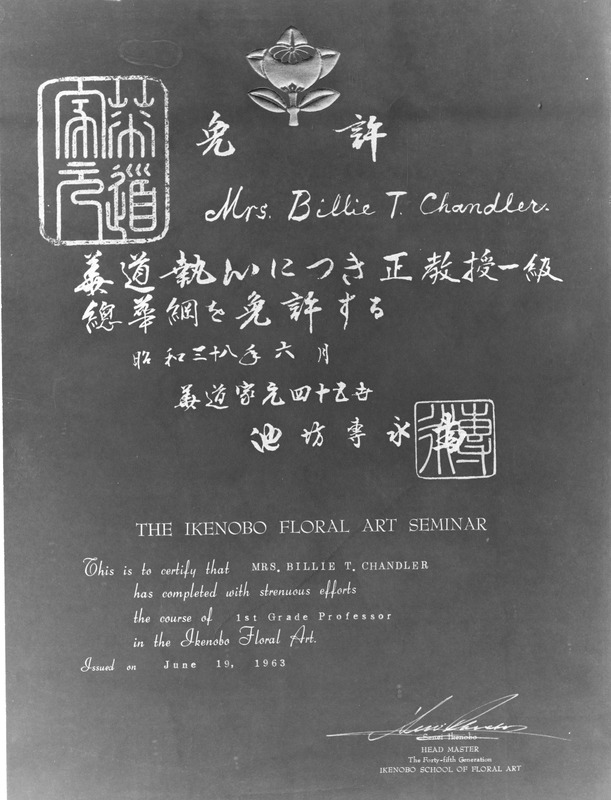 華道
家元
免許
Mrs. Billie T. Chandler.
華道執心につき正教授一級
總華綱を免許する
昭和三十八年六月
華道家元四十五世
池坊專永
專永
THE IKENOBO FLORAL ART SEMINAR
This is to certify that MRS. BILLIE T. CHANDLER
has completed with strenuous efforts
the course of 1st Grade Professor
in the Ikenobo Floral Art.
Issued on June 19, 1963
Senei Ikenobo
HEAD MASTER
The Forty-fifth Generation
IKENOBO SCHOOL OF FLORAL ART